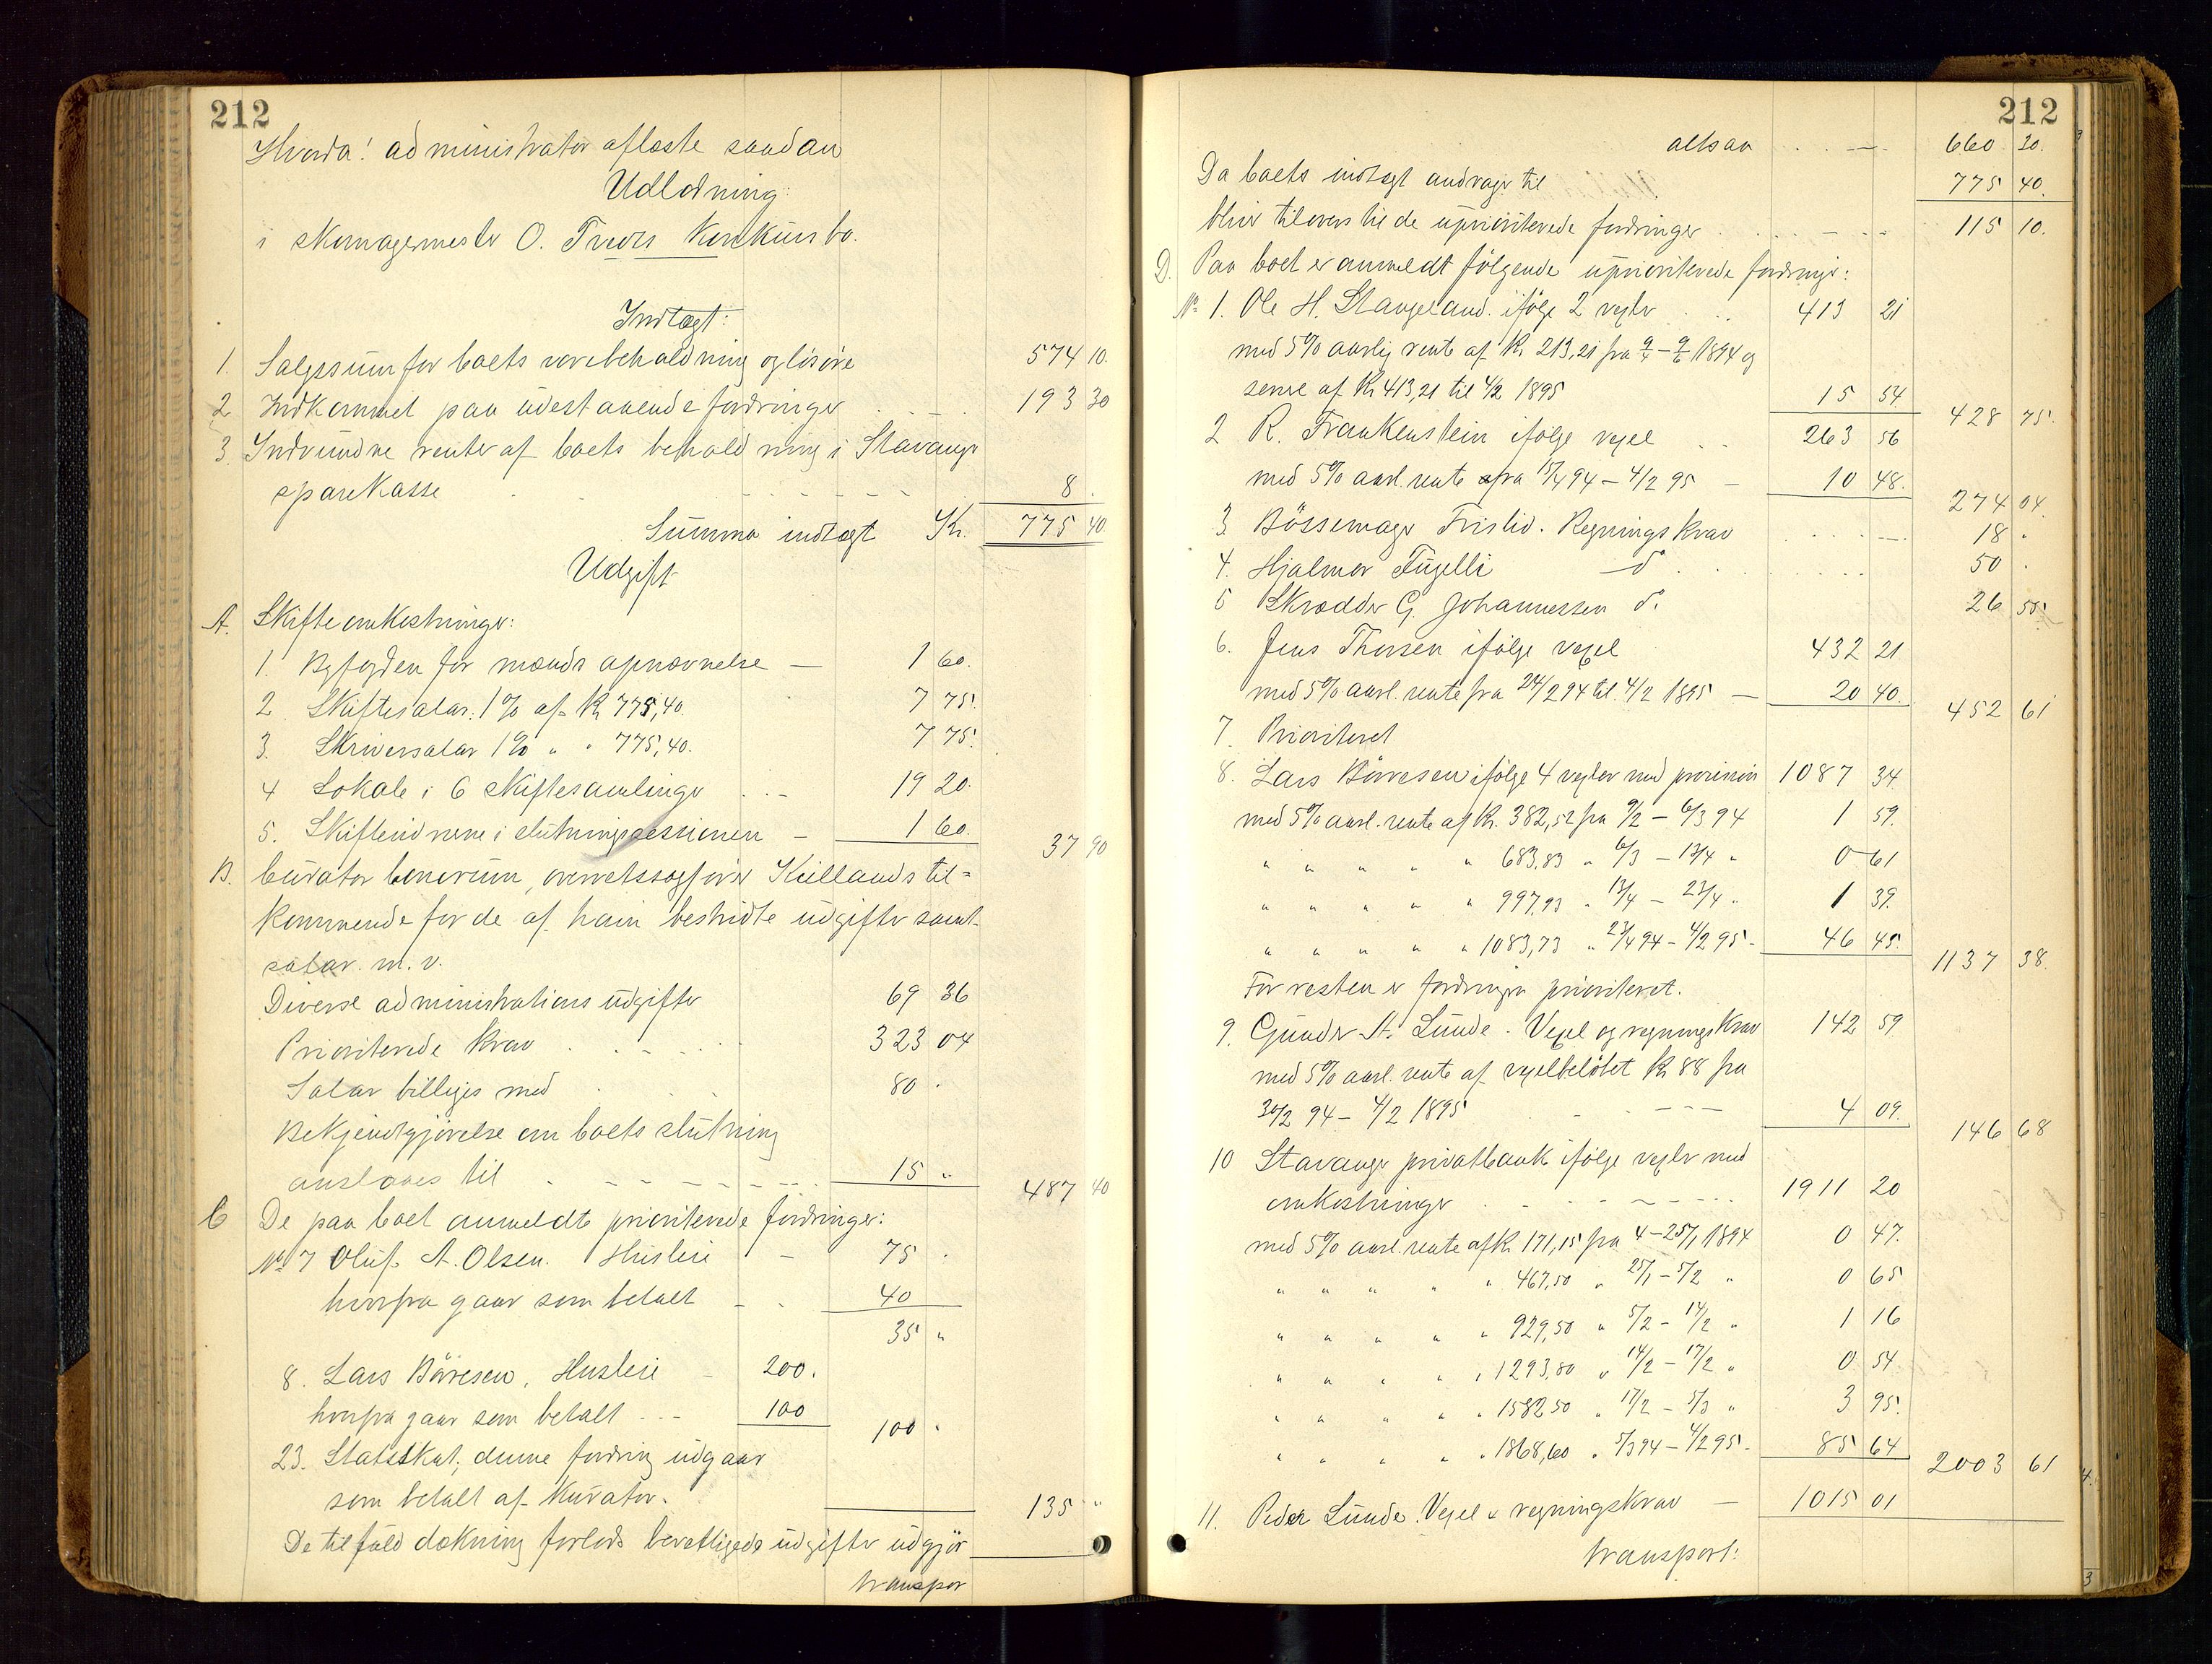 212
Hvorda! administrator afleste saadan
Udlodning:
i skomagermester O. Tveds Konkursbo.
Indtægt:
1. Salgssum for boets varebehaldning og lösöre 574 10.
2 Indkommet paa udestaaende fordringer . . - . 193 30
3. Indvundne renter af boets behaldning i Stavanger
sparekasse . . - - - - - - 8 .
Summa indtægt Kr. 775 40
Udgift
A. Skifteomkostninger:
1. Byfogden for mænds opnævnelse — 1 60.
2 Skiftesalar: 1% af Kr 775,40. 7 75.
3. Skriversalar 1% " " 775,40. 7 75.
4 Lokale i 6 skiftesamlinger . . - 19 20.
5. Skiftevidnerne i slutningssessionen — 1 60. 37 90
B. Curator bonorum, overretssagförer Kiellands til=
kommende for de af ham bestridte udgifter samt
salar. m. v.
Diverse administrations udgifter 69 36
Prioriterede krav . . - . - . 323 04
Salar billiges med . . . 80 .
Bekjendtgjörelse om boets slutning
anslaaes til . - - - - - - - 15 " 487 40
C De paa boet anmeldte prioriterede fordringer:
No 7 Oluf A. Olsen. Husleie - 75 .
hvorfra gaar som betalt - . 40
35 "
8. Lars Börresen, Husleie - 200.
hvorfra gaar som betalt . . - 100 100 .
23. Statsskat; denne fordring udgaar
som betalt af Kurator. 135 "
De til fuld dækning forlods berettigede udgifter udgjör
transpor
212
altsaa . . —. 660 30.
Da boets indtægt andrager til 775 40.
bliver tilovers til de uprioriterede fordringer . . . - - - 115 10.
D. Paa boet er anmeldt fölgende uprioriterede fordringer:
No 1. Ole H. Stangeland. ifölge 2 vexler . . . 413 21
med 5% aarlig rente af Kr 213,21 fra 9/4 - 9/6 1894 og
senere af Kr 413,21 til 4/2 1895 15 54. 428 75.
2 R. Frankenstein ifölge vexel . . 263 56
med 5% aarl. rente fra 15/4 94 - 4/2 95 — 10 48. 274 04.
3. Bössemager Tvislid. Regningskrav . . . - — 18 .
4. Hjalmar Fugelli — do . . . . . 50 .
5 Skrædder G. Johannessen do. 26 55.
6. Jens Thorsen ifölge vexel 432 21
med 5% aarl. rente fra 24/2 94 til 4/2 1895 — 20 40. 452 61
7. Prioriteret
8. Lars Börresen ifölge 4 vexler med provision 1087 34.
med 5% aarl. rente af Kr. 382,52 fra 9/2 - 6/3 94 1 59.
" " " " " 683,83 " 6/3 - 13/4 " 0 61
" " " " " 997,93 " 13/4 - 23/4 " 1 39.
" " " " " 1083,73 " 23/4 94 - 4/2 95 - 46 45. 1137 38.
For resten er fordringen prioriteret.
9. Gunder A. Lunde. Vexel og regningskrav 142 59.
med 5% aarl. rente af vexelbelöbet Kr 88 fra
30/2 94 - 4/2 1895 . - . - - - 4 09. 146 68
10 Stavanger privatbank ifölge vexler med
omkostninger . - . . - - . . . 1911 20
med 5% aarl. rente af Kr. 171,15 fra 4 - 25/1 1894 0 47.
" " " " " 467,50 " 25/1 - 5/2 " 0 65
" " " " " 929,50 " 5/2 - 14/2 " 1 16
" " " " " 1293,80 " 14/2 - 17/2 " 0 54
" " " " " 1582,50 " 17/2 - 5/3 " 3 95.
" " " " " 1868,60 " 5/3 94 - 4/2 95 - 85 64 2003 61
11. Peder Lunde. Vexel & regningskrav — 1015 01
transport: